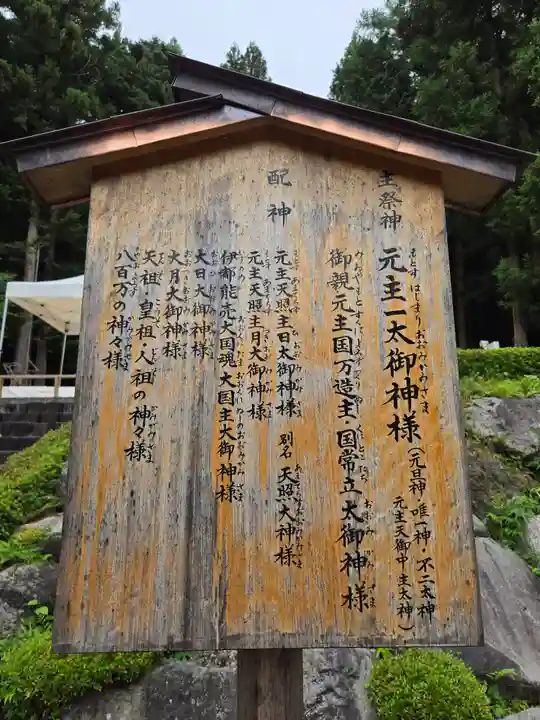 主祭神
元主一太御神様
もとすはじまりおおみかみさま
(元旦神・唯一神・不二太神
元主天御中主太神)
御親元主国万造主・国常立大御神様
配神
元主天照主日太御神様 別名 天照大神様
元主天照主月大御神様
伊都能売大国魂大国主大御神様
大日大御神様
大月大御神様
天祖・皇祖・人祖の神々様
八百万の神々様